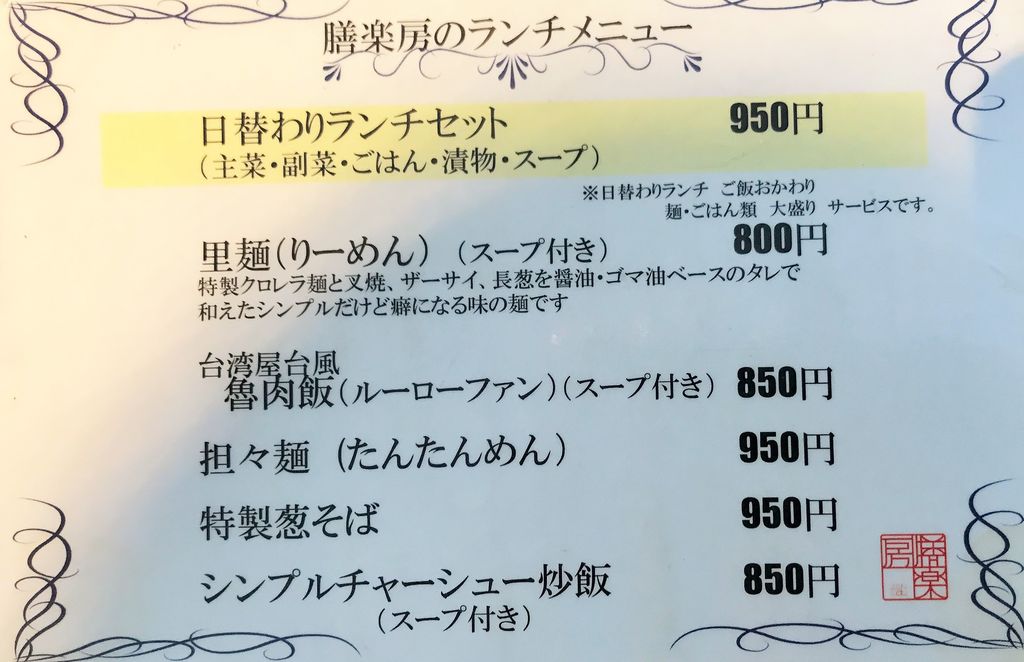 膳楽房のランチメニュー
日替わりランチセット 950円
（主菜・副菜・ごはん・漬物・スープ）
※日替わりランチ ご飯おかわり
麺・ごはん類 大盛り サービスです。
里麺（りーめん）（スープ付き） 800円
特製クロレラ麺と叉焼、ザーサイ、長葱を醤油・ゴマ油ベースのタレで
和えたシンプルだけど癖になる味の麺です
台湾屋台風
魯肉飯（ルーローファン）（スープ付き） 850円
担々麺 （たんたんめん） 950円
特製葱そば 950円
シンプルチャーシュー炒飯 850円
（スープ付き）
膳楽房